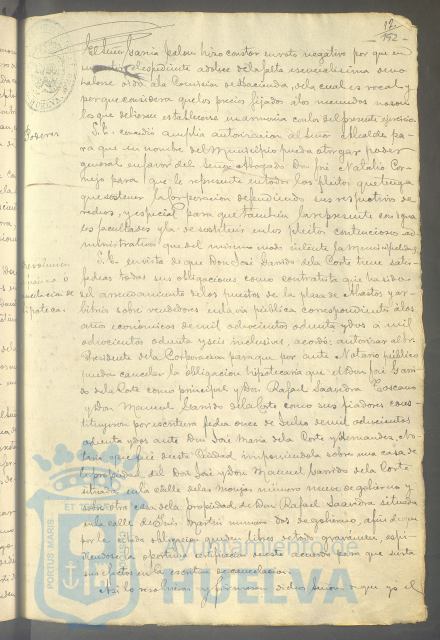 12
192
El Señor García Palom hizo constar su voto negativo por que en
expediente adolece de la falta esencialisima de no
haberse oido a la Comision de Hacienda, de la cual es vocal y
por que considera que los precios fijados a los menudos no son
los que debieran establecerse en armonia con los del presente ejercicio.
Poderes
S.E. concedió amplia autorizacion al Señor Alcalde pa-
ra que en nombre del Municipio pueda otorgar poder
general en favor del Señor Abogado Don José Natalio Cor-
nejo para que le represente en todos los pleitos que tenga
que sostener la Corporacion defendiendo sus respectivos de-
rechos, y especial para que tambien la represente con igua-
les facultades y la de sostituir en los pleitos contenciosos ad-
ministrativos que del mismo modo intente la Municipalidad.
S.E. en vista de que Don José Garrido de la Corte tiene satis-
fechas todas sus obligaciones como contratista que ha sido
del arrendamiento de los puestos de la plaza de Abastos y ar-
bitrio sobre vendedores en la via pública correspondiente á los
años economicos de mil ochocientos ochenta y dos á mil
ochocientos ochenta y seis inclusive, acordó: autorizar al Sr.
hipoteca.
Presidente de la Corporacion para que por ante Notario público
pueda cancelar la obligacion hipotecaria que el Don José Garri-
do de la Corte como principal y Don Rafael Saavedra Toscano
y Don Manuel Garrido de la Corte como sus fiadores cons-
tituyeron por escritura fecha once de Julio de mil ochocientos
ochenta y dos ante Don José Maria de la Corte y Hernandez, No-
tario que fué de esta Ciudad imponiendola sobre una casa de
la propiedad del Don José y Don Manuel Garrido de la Corte
situada en la Calle de las Monjas número nueve de gobierno y
sobre otra casa de la propiedad de Don Rafael Saavedra situada
en la calle de numero dos de gobierno, afin de que
por la citada obligacion queden libres de todo gravámen, espi-
diendose la oportuna certificacion de este acuerdo para que surta
sus efectos en la escritura de cancelacion.
Asi lo resolvieron y firmaron dichos Señores de que yo el
PORTUS MARIS
ET TERRAE
Ayuntamiento de
HUELVA